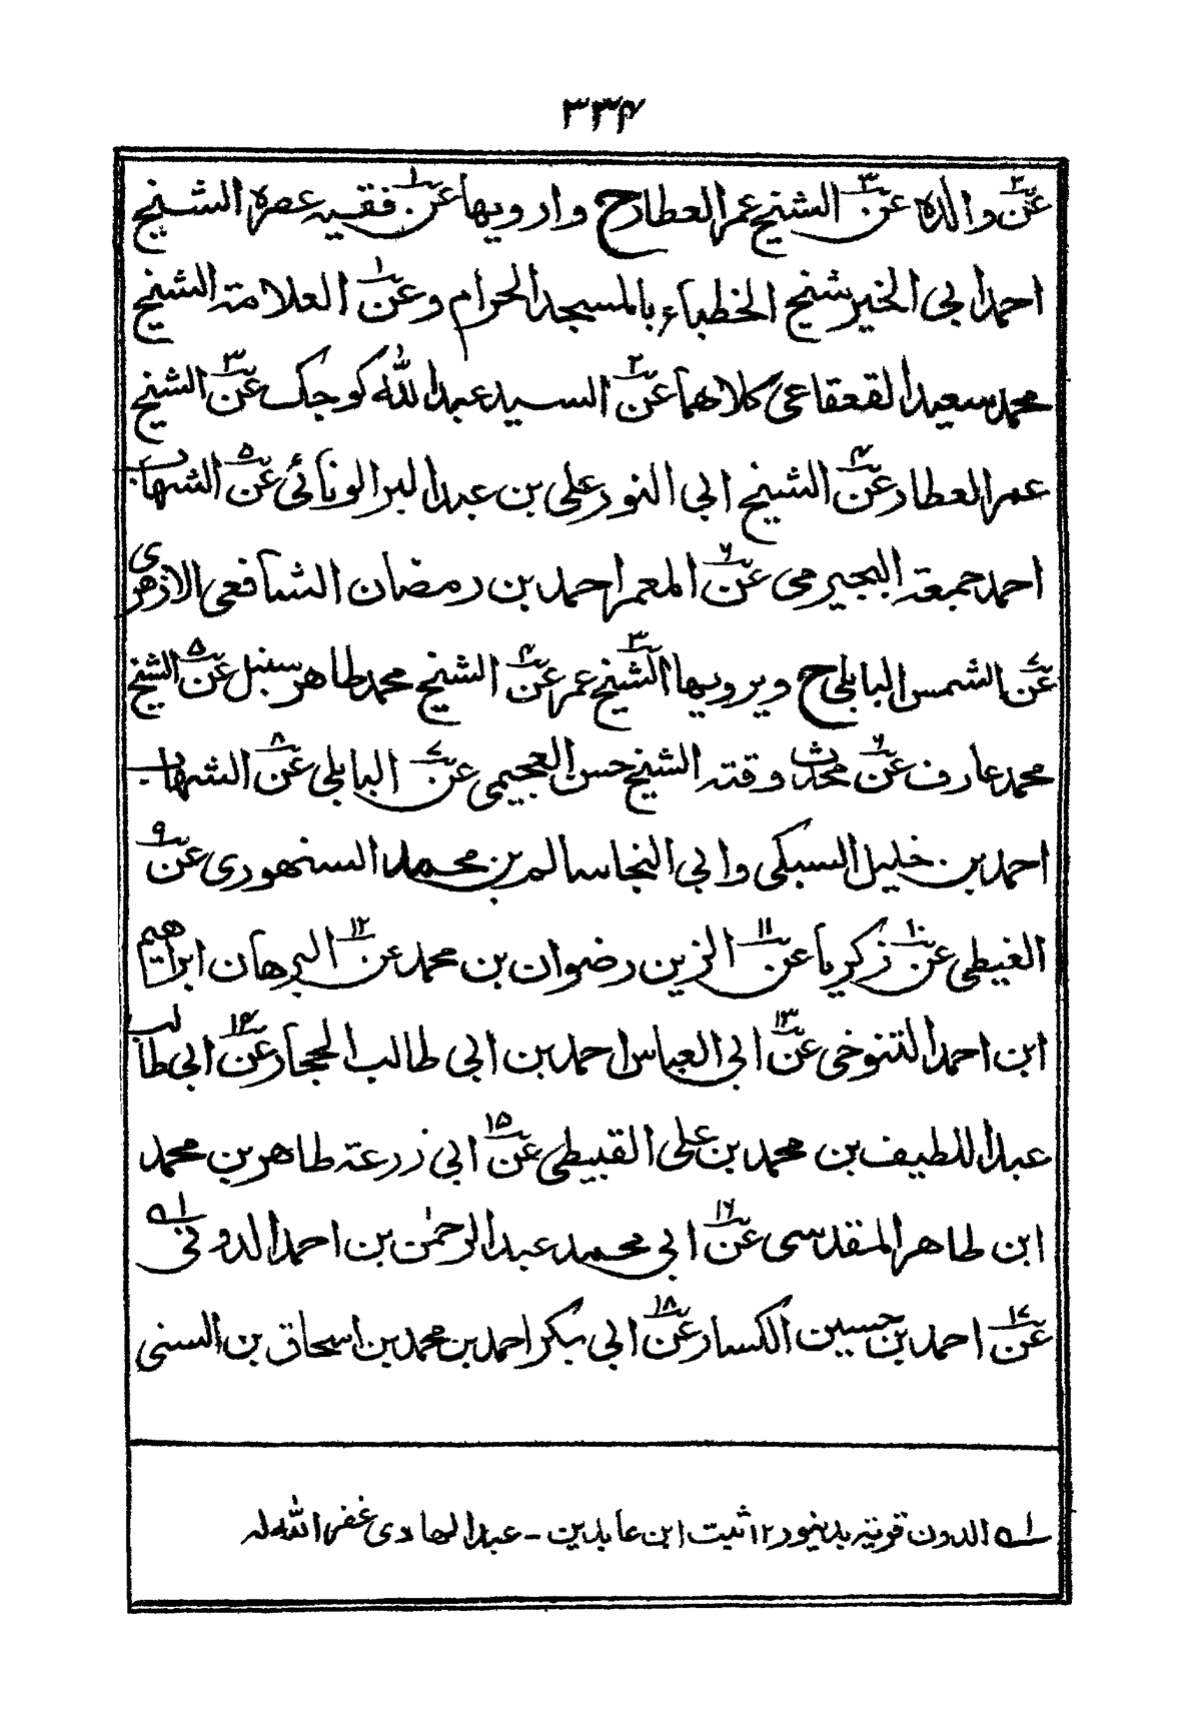 ٣٣۴
عن٢ والده عن٣ الشيخ عمر العطار ح وارويها عن١ فقيه عصره الشيخ
احمد ابي الخير شيخ الخطباء بالمسجد الحرام وعن١ العلامة الشيخ
محمد سعيد القعقاعي كلاهما عن٢ السيد عبدالله كوجك عن٣ الشيخ
عمر العطار عن۴ الشيخ ابي النور علي بن عبدالبر الونائي عن۵ الشهاب
احمد جمعة البجيرمي عن۶ المعمر احمد بن رمضان الشافعي الازهري
عن٧ الشمس البابلي ح ويرويها الشيخ٣ عمر عن۴ الشيخ محمد طاهر سنبل عن۵ الشيخ
محمد عارف عن۶ محدث وقته الشيخ حسن العجيمي عن٧ البابلي عن٨ الشهاب
احمد بن خليل السبكي وابي النجا سالم بن محمد السنهوري عن٩
الغيطي عن١٠ زكريا عن١١ الزين رضوان بن محمد عن١٢ البرهان ابراهيم
ابن احمد التنوخي عن١٣ ابي العباس احمد بن ابي طالب الحجار عن١۴ ابي طالب
عبد اللطيف بن محمد بن علي القبيطي عن١۵ ابي زرعة طاهر بن محمد
ابن طاهر المقدسي عن١۶ ابي محمد عبد الرحمٰن بن احمد الدوني ١ه
عن١٧ احمد بن حسين الكسار عن١٨ ابي بكر احمد بن محمد بن اسحاق بن السني
١ه الدون قرية بدينور ١٢ ثبت ابن عابدين - عبد الهادي غفر الله له